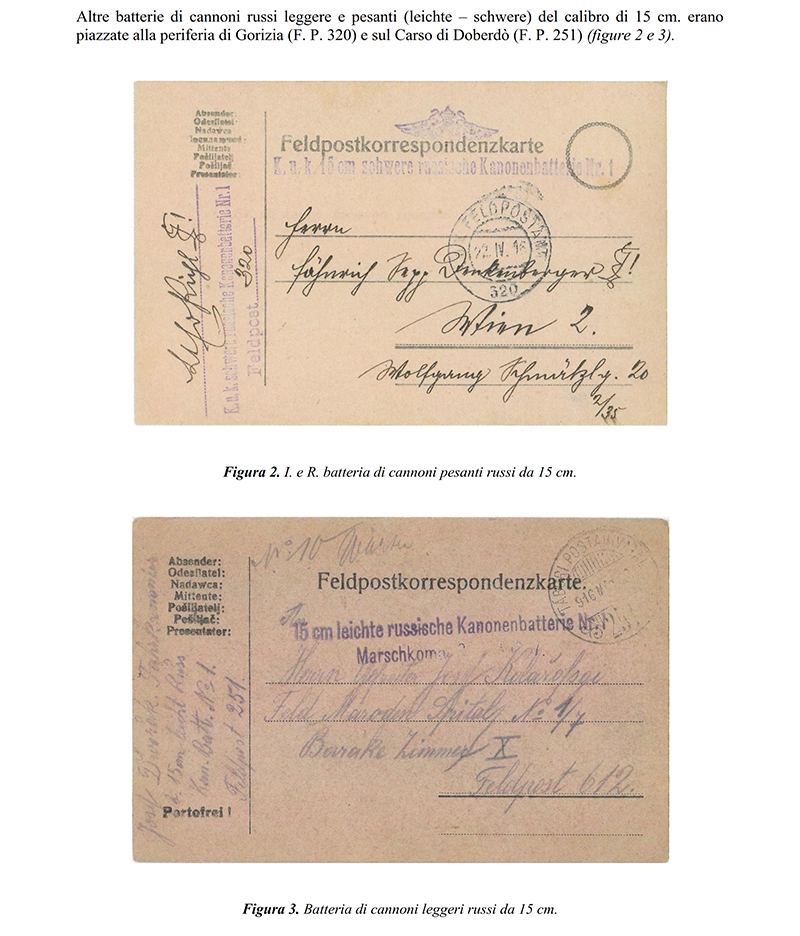 Altre batterie di cannoni russi leggere e pesanti (leichte – schwere) del calibro di 15 cm. erano
piazzate alla periferia di Gorizia (F. P. 320) e sul Carso di Doberdò (F. P. 251) (figure 2 e 3).
Absender:
Odesílatel:
Nadawca
Mittente
Pošiljatelj
Pošiljač
Presentator:
K.u.k. schwere russische Kanonenbatterie Nr.1
Feldpost 320
Feldpostkorrespondenzkarte
K. u. k. 15 cm schwere russische Kanonenbatterie Nr. 1
FELDPOSTAMT
22. IV. 16
320
Herrn
Fähnrich Sepp
Wien 2.
Wolfgang Schmälzlg. 20
2/35
Figura 2. I. e R. batteria di cannoni pesanti russi da 15 cm.
Absender:
Odesílatel:
Nadawca:
Mittente:
Pošiljatelj:
Pošiljač:
Presentator:
Josef Dvořak
d. 15cm leicht Russ
Kan. Batt. No 1.
Feldpost 251
Portofrei!
No 10
Feldpostkorrespondenzkarte.
TABORI POSTAHIVATAL
15 cm leichte russische Kanonenbatterie Nr. 1
Herrn Josef
Feld Maroden Spital No 1/4
Barake Zimmer X
Feldpost 612.
Figura 3. Batteria di cannoni leggeri russi da 15 cm.